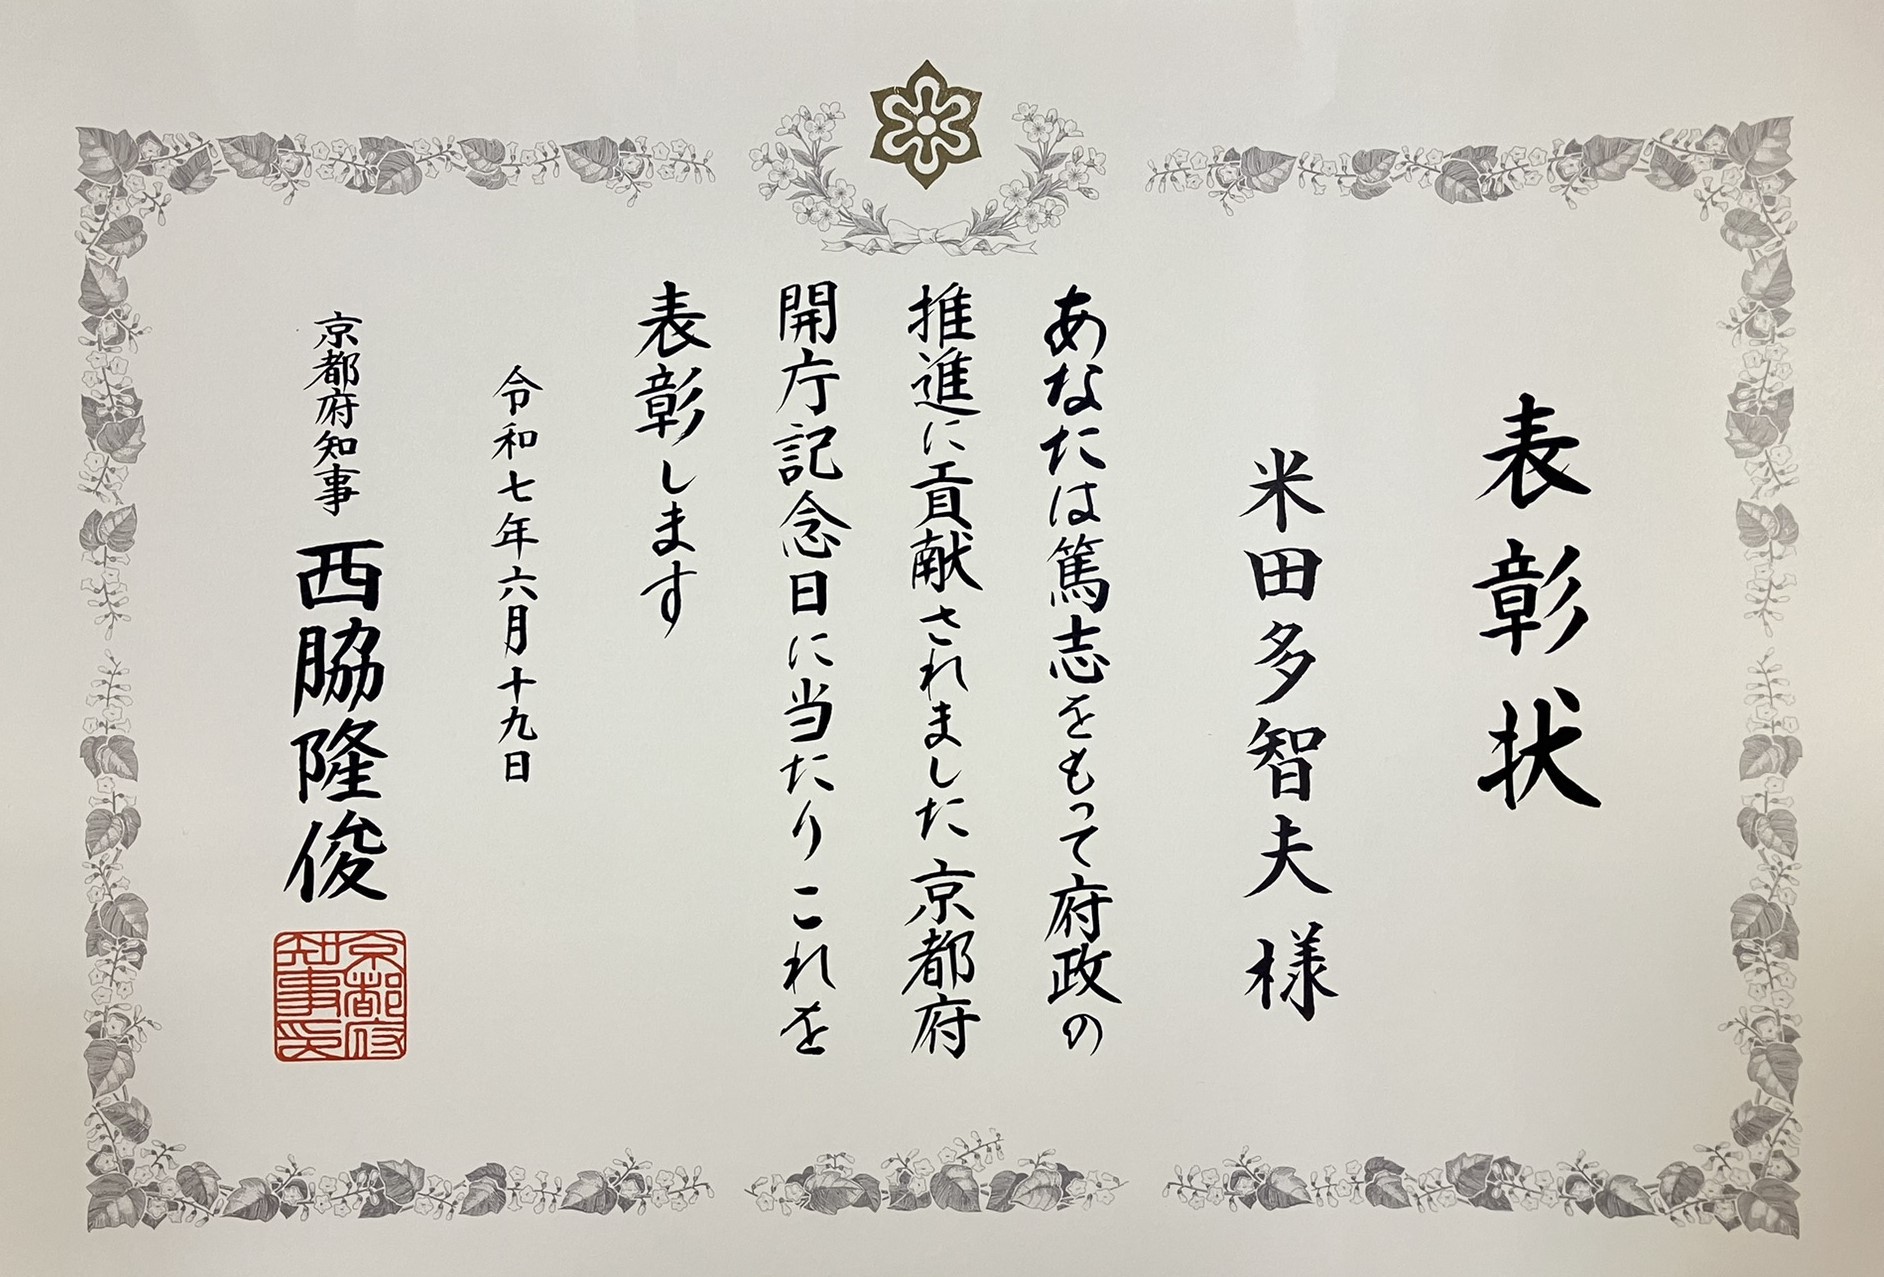 表彰状
米田多智夫 様
あなたは篤志をもって府政の
推進に貢献されました京都府
開庁記念日に当たりこれを
表彰します
令和七年六月十九日
京都府知事 西脇隆俊
京都府
知事印